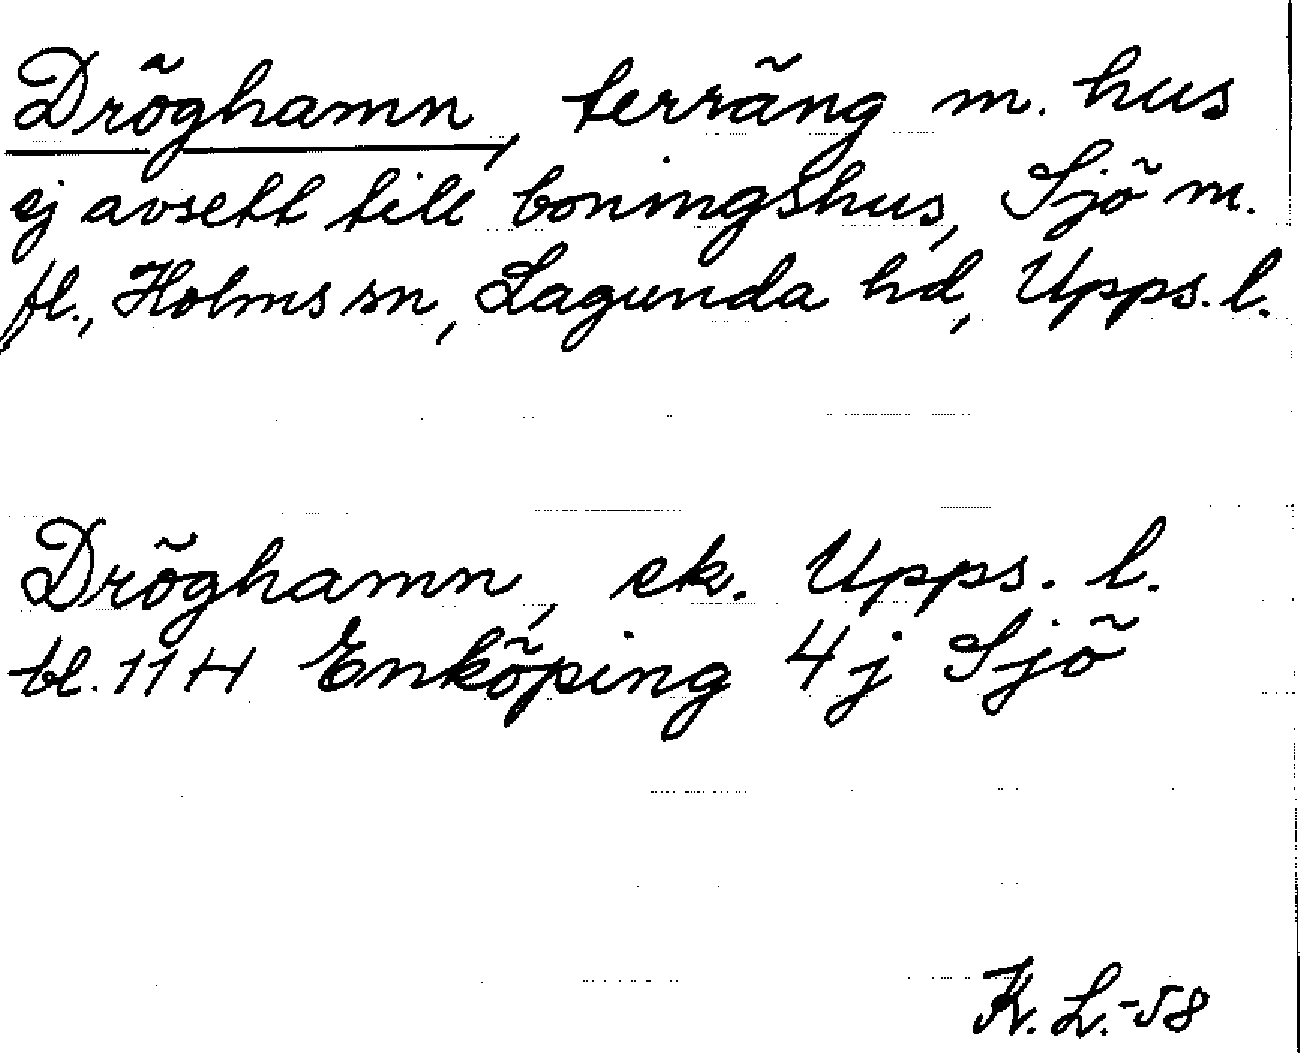 Dröghamn, terräng m. hus
ej avsett till boningshus, Sjö m.
fl., Holms sn, Lagunda hd, Upps. l.
Dröghamn, ek. Upps. l.
bl. 11 H Enköping 4 j Sjö
K. L. -58